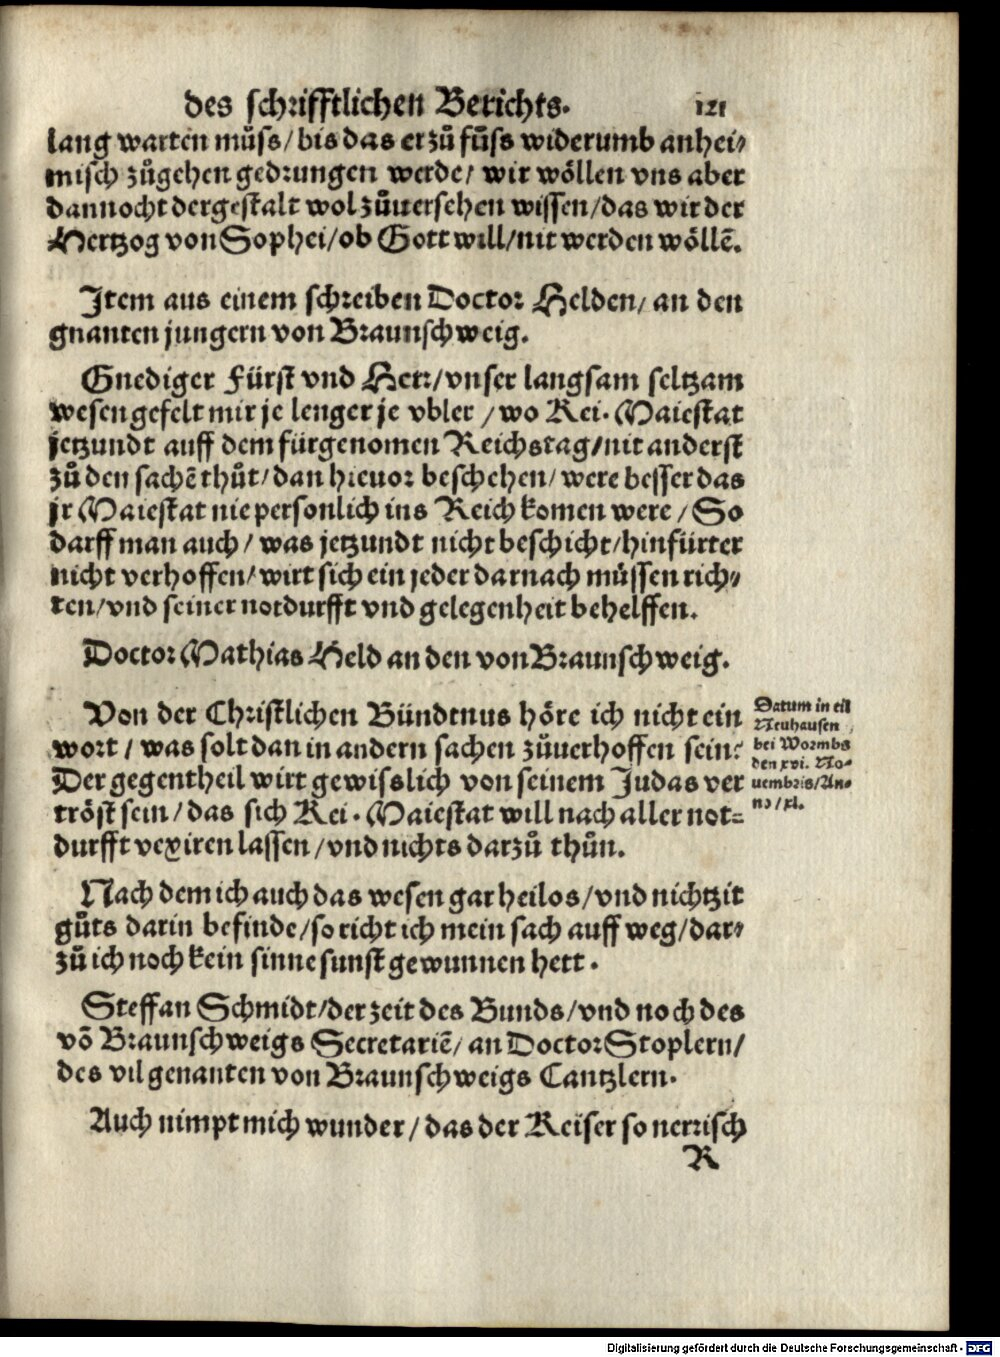 des schrifftlichen Berichts. 121
lang warten můss/ bis das er zů fůss widerumb anhei⸗
misch zůgehen gedrungen werde/ wir wöllen vns aber
dannocht dergestalt wol zůuersehen wissen/ das wir der
Hertzog von Sophei/ ob Gott will/ nit werden wöllẽ.
Item aus einem schreiben Doctor Helden/ an den
gnanten jungern von Braunschweig.
Gnediger Fürst vnd Herr/ vnser langsam seltzam
wesen gefelt mir je lenger je vbler / wo Kei. Maiestat
jetzundt auff dem fürgenomen Reichstag/ nit anderst
zů den sachẽ thůt/ dan hieuor beschehen/ were besser das
jr Maiestat nie personlich ins Reich komen were / So
darff man auch / was jetzundt nicht beschicht/ hinfürter
nicht verhoffen/ wirt sich ein jeder darnach müssen rich⸗
ten/ vnd seiner notdurfft vnd gelegenheit behelffen.
Doctor Mathias Held an den von Braunschweig.
Von der Christlichen Bündtnus höre ich nicht ein
wort / was solt dan in andern sachen zůuerhoffen sein:
Der gegentheil wirt gewisslich von seinem Judas ver
tröst sein / das sich Kei. Maiestat will nach aller not⸗
durfft vexiren lassen / vnd nichts darzů thůn.
Datum in eil
Neuhausen
bei Wormbs
den xvi. No⸗
uembris/ An⸗
no / xl.
Nach dem ich auch das wesen gar heilos/ vnd nichtzit
gůts darin befinde/ so richt ich mein sach auff weg/ dar⸗
zů ich noch kein sinne sunst gewunnen hett.
Steffan Schmidt/ der zeit des Bunds/ vnd noch des
võ Braunschweigs Secretariẽ/ an Doctor Stoplern/
des vil genanten von Braunschweigs Cantzlern.
Auch nimpt mich wunder / das der Keiser so nerrisch
R
Digitalisierung gefördert durch die Deutsche Forschungsgemeinschaft - DFG